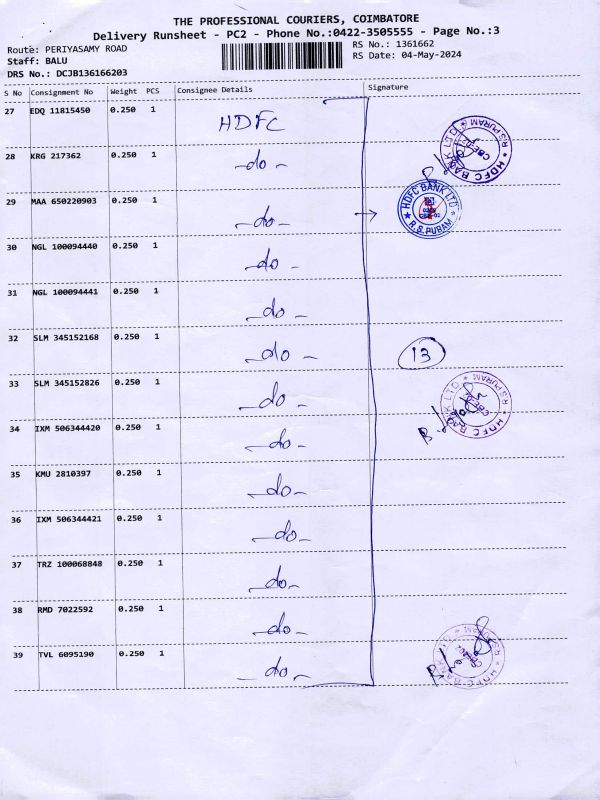 THE PROFESSIONAL COURIERS, COIMBATORE
Delivery Runsheet - PC2 - Phone No.:0422-3505555 - Page No.:3
Route: PERIYASAMY ROAD
RS No.: 1361662
Staff: BALU
RS Date: 04-May-2024
DRS No.: DCJB136166203
S No Consignment No Weight PCS Consignee Details Signature
27 EDQ 11815450 0.250 1 HDFC
28 KRG 217362 0.250 1 -do-
29 MAA 650220903 0.250 1 -do- →
30 NGL 100094440 0.250 1 -do-
31 NGL 100094441 0.250 1 -do-
32 SLM 345152168 0.250 1 -do- 13
33 SLM 345152826 0.250 1 -do-
34 IXM 506344420 0.250 1 -do-
35 KMU 2810397 0.250 1 -do-
36 IXM 506344421 0.250 1 -do-
37 TRZ 100068848 0.250 1 -do-
38 RMD 7022592 0.250 1 -do-
39 TVL 6095190 0.250 1 -do-
★ HDFC BANK LTD ★ R S PURAM
HDFC BANK LTD
★ R.S.PURAM ★
★ HDFC BANK LTD ★ R S PURAM
★ HDFC BANK LTD ★ R S PURAM